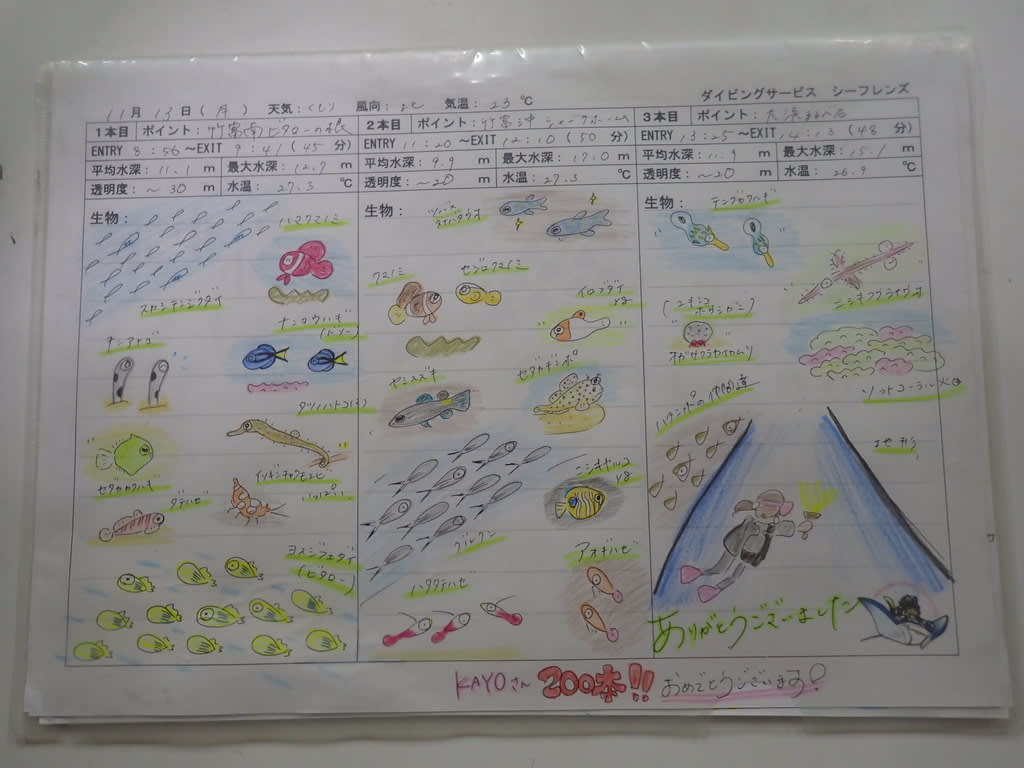 ダイビングサービス シーフレンズ
11月 13日(月) 天気: くもり 風向: 北 気温: 23℃
1本目 ポイント: 竹富南ビタローの根
ENTRY 8:56 ～EXIT 9:41 (45分)
平均水深: 11.1 m 最大水深: 12.7 m
透明度: ～30 m 水温: 27.3 ℃
生物:
ハマクマノミ
スカシテンジクダイ
ナンヨウハギ
(ドリー)
チンアナゴ
タツノハトコ
セダカカワハギ
イソギンチャクモエビ
いっぱい
ダテハゼ
ヨスジフエダイ
(ビタロー)
2本目 ポイント: 竹富沖 シャークホーム
ENTRY 11:20 ～EXIT 12:10 (50分)
平均水深: 9.9 m 最大水深: 17.0 m
透明度: ～20 m 水温: 27.3 ℃
生物:
クマノミ
セジロクマノミ
イロブダイ
yg
ヤミスズキ
セダカギンポ
ニシキヤッコ
yg
グルクン
ハタタテハゼ
アオギハゼ
3本目 ポイント:
ENTRY 13:25 ～EXIT 14:13 (48分)
平均水深: 11.9 m 最大水深: 15.1 m
透明度: ～20 m 水温: 26.9 ℃
生物:
テングカワハギ
ニシキフウライウオ
オガサワラカイカムリ
ソフトコーラル
ハタンポの仲間達
地形
ありがとうございました
KAYOさん 200本!! おめでとうございます!